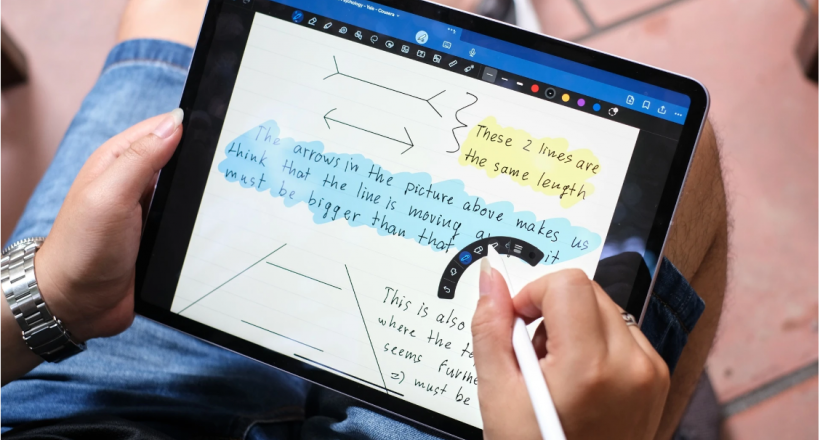 Psychology - Yale - Coursera
These 2 lines are
the same length
The arrows in the picture above makes us
think that the line is moving
must be bigger than that it
This is also
where the
seems further
=) must be